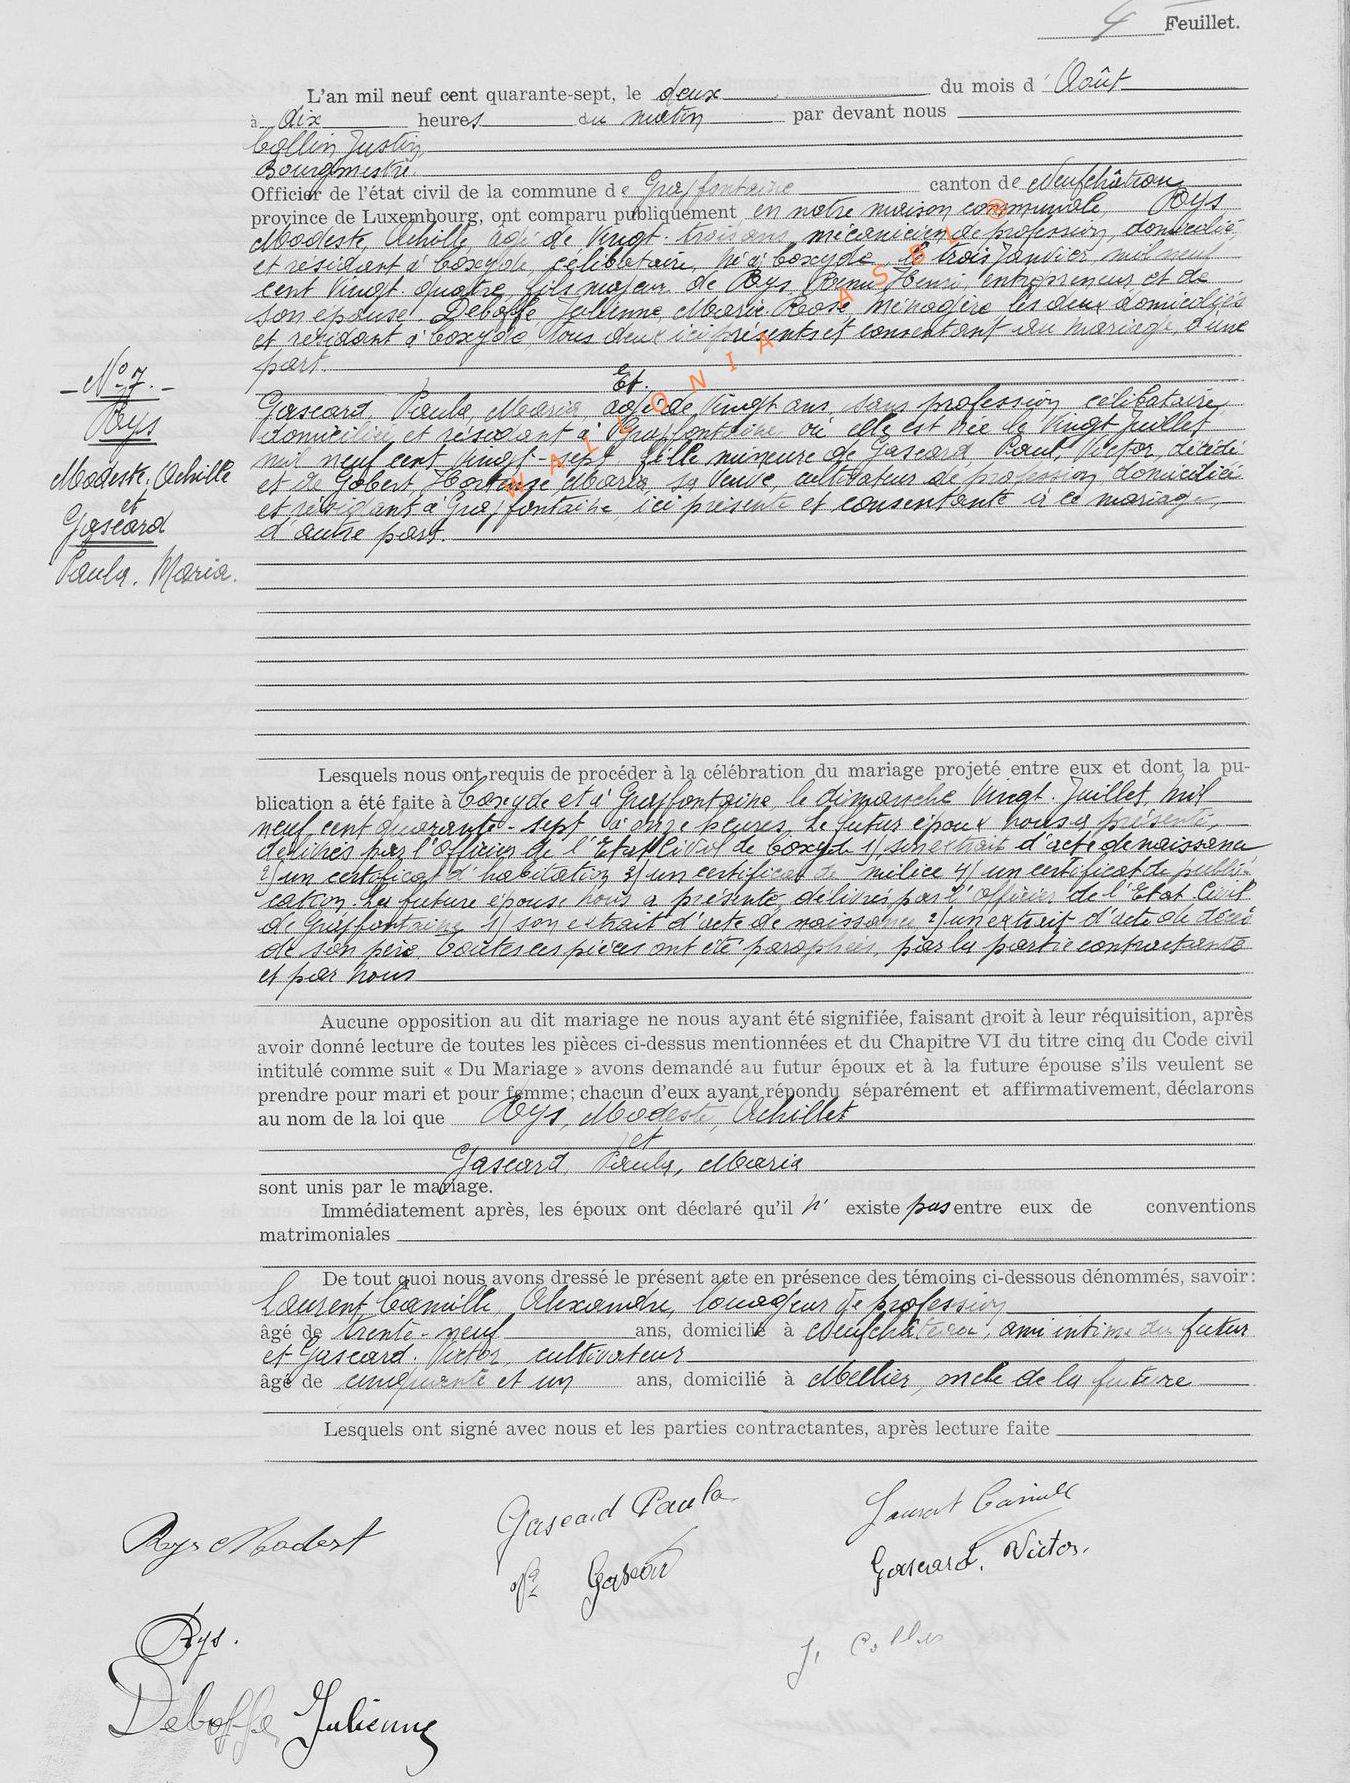 4 Feuillet.
L'an mil neuf cent quarante-sept, le deux du mois d' Août
à dix heures du matin par devant nous
Collin Justin,
Bourgmestre.
Officier de l'état civil de la commune de Grapfontaine canton de Neufchâteau
province de Luxembourg, ont comparu publiquement en notre maison communale, Rys
Modeste, Achille âgé de vingt-trois ans, mécanicien de profession, domicilié
et résidant à Coxyde, célibataire, né à Coxyde, le trois Janvier mil neuf
cent vingt-quatre, fils majeur de Rys, Henri, entrepreneur et de
son épouse Deboffe Julienne Marie Rose, Ménagère les deux domiciliés
et résidant à Coxyde, tous deux ici présents et consentant au mariage, d'une
part.
Et.
Gascard, Paula, Maria âgée de vingt ans, sans profession, célibataire,
domiciliée et résidant à Grapfontaine où elle est née le vingt Juillet
mil neuf cent vingt-sept fille mineure de Gascard, Paul, Victor, décédé
et de Gobert, Hortense, Maria, sa veuve, cultivateur de profession, domiciliée
et résidant à Grapfontaine, ici présente et consentante à ce mariage,
d'autre part.
- N° 7. -
Rys
Modeste, Achille
et
Gascard
Paula. Maria.
WALLONIA ASBL ©
Lesquels nous ont requis de procéder à la célébration du mariage projeté entre eux et dont la pu-
blication a été faite à Coxyde et à Grapfontaine, le dimanche vingt Juillet mil
neuf cent quarante-sept à onze heures. Le futur époux nous a présenté,
délivrés par l'officier de l'Etat Civil de Coxyde 1) son extrait d'acte de naissance
2) un certificat d'habitation 3) un certificat de milice 4) un certificat de publi-
cation. La future épouse nous a présenté, délivrés par l'officier de l'Etat Civil
de Grapfontaine 1) son extrait d'acte de naissance 2) un extrait d'acte de décès
de son père. Toutes ces pièces ont été paraphées, par la partie contractante
et par nous
Aucune opposition au dit mariage ne nous ayant été signifiée, faisant droit à leur réquisition, après
avoir donné lecture de toutes les pièces ci-dessus mentionnées et du Chapitre VI du titre cinq du Code civil
intitulé comme suit « Du Mariage » avons demandé au futur époux et à la future épouse s'ils veulent se
prendre pour mari et pour femme; chacun d'eux ayant répondu séparément et affirmativement, déclarons
au nom de la loi que Rys, Modeste, Achille
et
Gascard, Paula, Maria
sont unis par le mariage.
Immédiatement après, les époux ont déclaré qu'il n' existe pas entre eux de conventions
matrimoniales
De tout quoi nous avons dressé le présent acte en présence des témoins ci-dessous dénommés, savoir:
Laurent Camille, Alexandre, louageur de profession
âgé de trente-neuf ans, domicilié à Neufchâteau, ami intime du futur
et Gascard. Victor, cultivateur
âgé de cinquante et un ans, domicilié à Mellier, oncle de la future
Lesquels ont signé avec nous et les parties contractantes, après lecture faite
Rys Modest
Gascard Paula
Laurent Camille
Gascard
Gascard. Victor.
Rys.
J. Collin
Deboffe Julienne